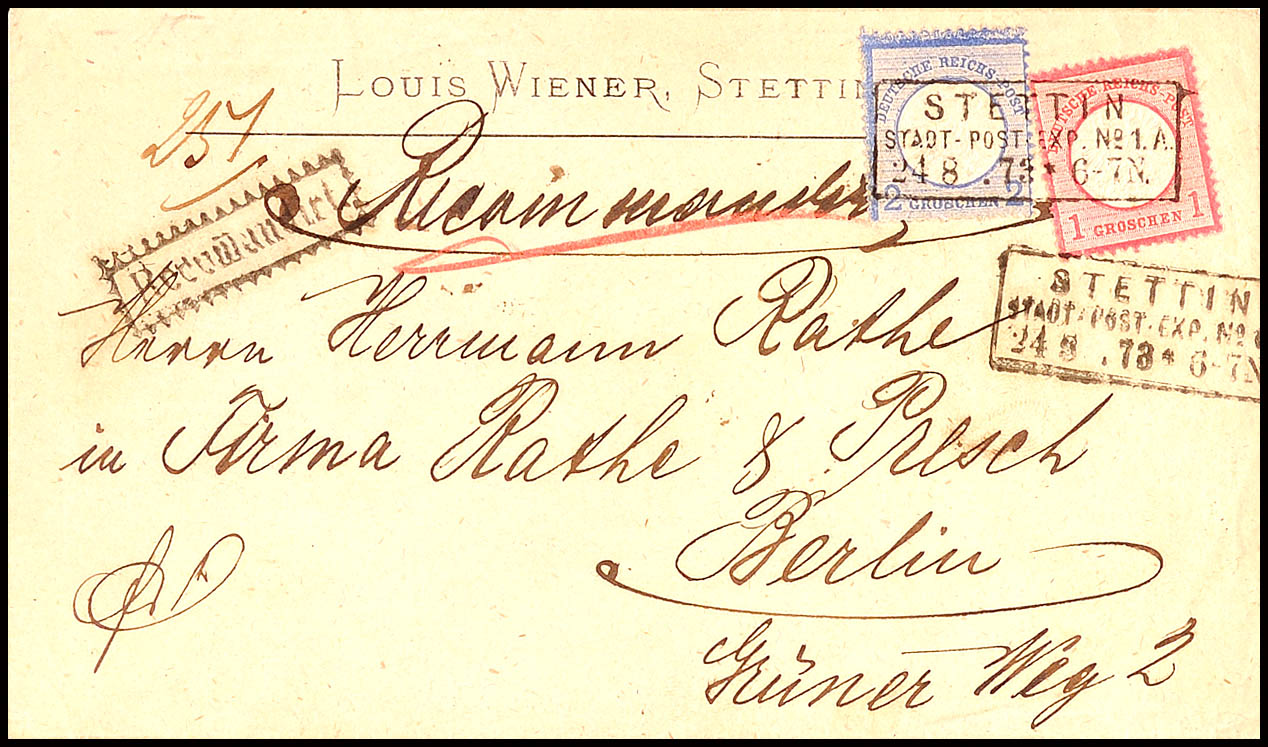 LOUIS WIENER, STETTIN
251
Recommandirt
Recommandirt
DEUTSCHE REICHS-POST
2 GROSCHEN 2
DEUTSCHE REICHS-POST
1 GROSCHEN 1
STETTIN
STADT-POST-EXP. No 1. A.
24 8 . 73 * 6-7N.
STETTIN
STADT-POST-EXP. No
24 8 . 73 * 6-7N
Herrn Herrmann Rathe
in Firma Rathe & Presch
Berlin
Grüner Weg 2